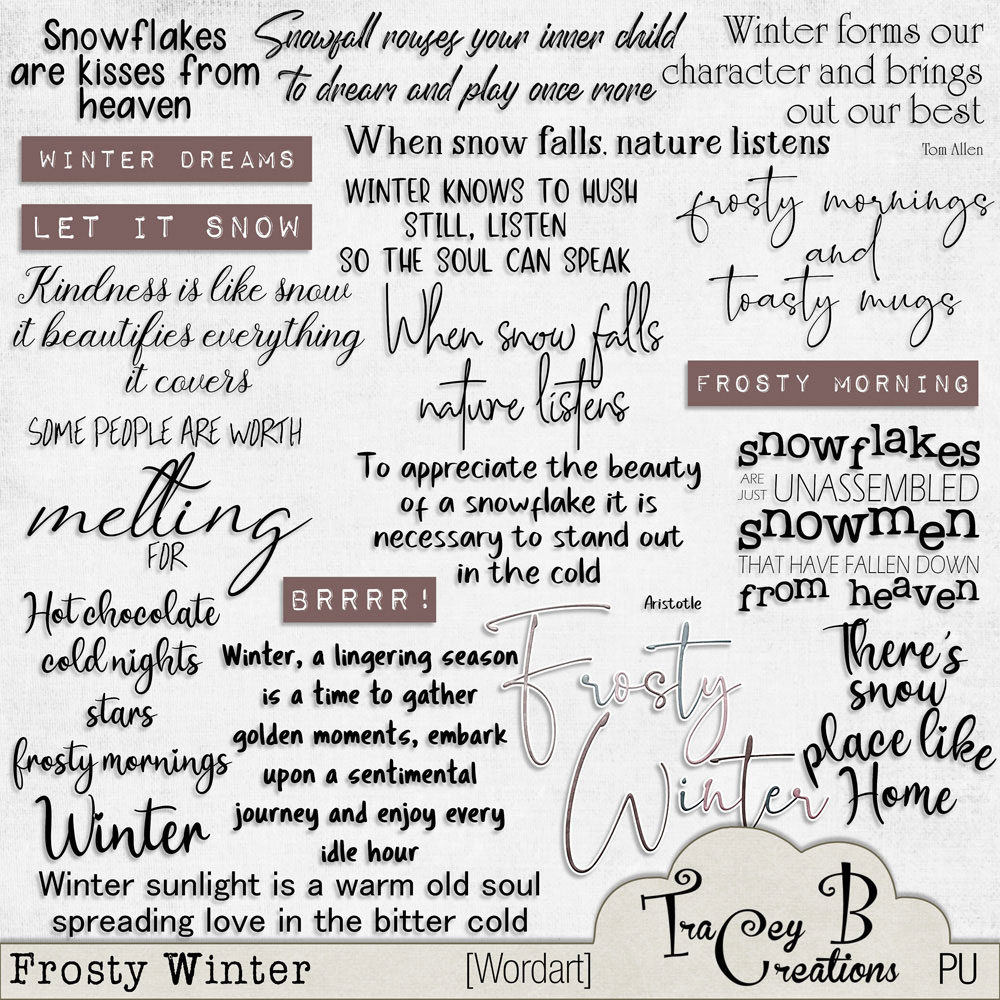 Snowflakes
are kisses from
heaven
Snowfall rouses your inner child
to dream and play once more
Winter forms our
character and brings
out our best
Tom Allen
WINTER DREAMS
When snow falls, nature listens
LET IT SNOW
WINTER KNOWS TO HUSH
STILL, LISTEN
SO THE SOUL CAN SPEAK
frosty mornings
and
toasty mugs
Kindness is like snow
it beautifies everything
it covers
When snow falls
nature listens
FROSTY MORNING
SOME PEOPLE ARE WORTH
melting
FOR
To appreciate the beauty
of a snowflake it is
necessary to stand out
in the cold
Aristotle
snowflakes
ARE
JUST UNASSEMBLED
snowmen
THAT HAVE FALLEN DOWN
from heaven
BRRRR!
Hot chocolate
cold nights
stars
frosty mornings
Winter
Winter, a lingering season
is a time to gather
golden moments, embark
upon a sentimental
journey and enjoy every
idle hour
Frosty
Winter
There's
snow
place like
Home
Winter sunlight is a warm old soul
spreading love in the bitter cold
Tracey B
Creations
Frosty Winter
[Wordart]
PU